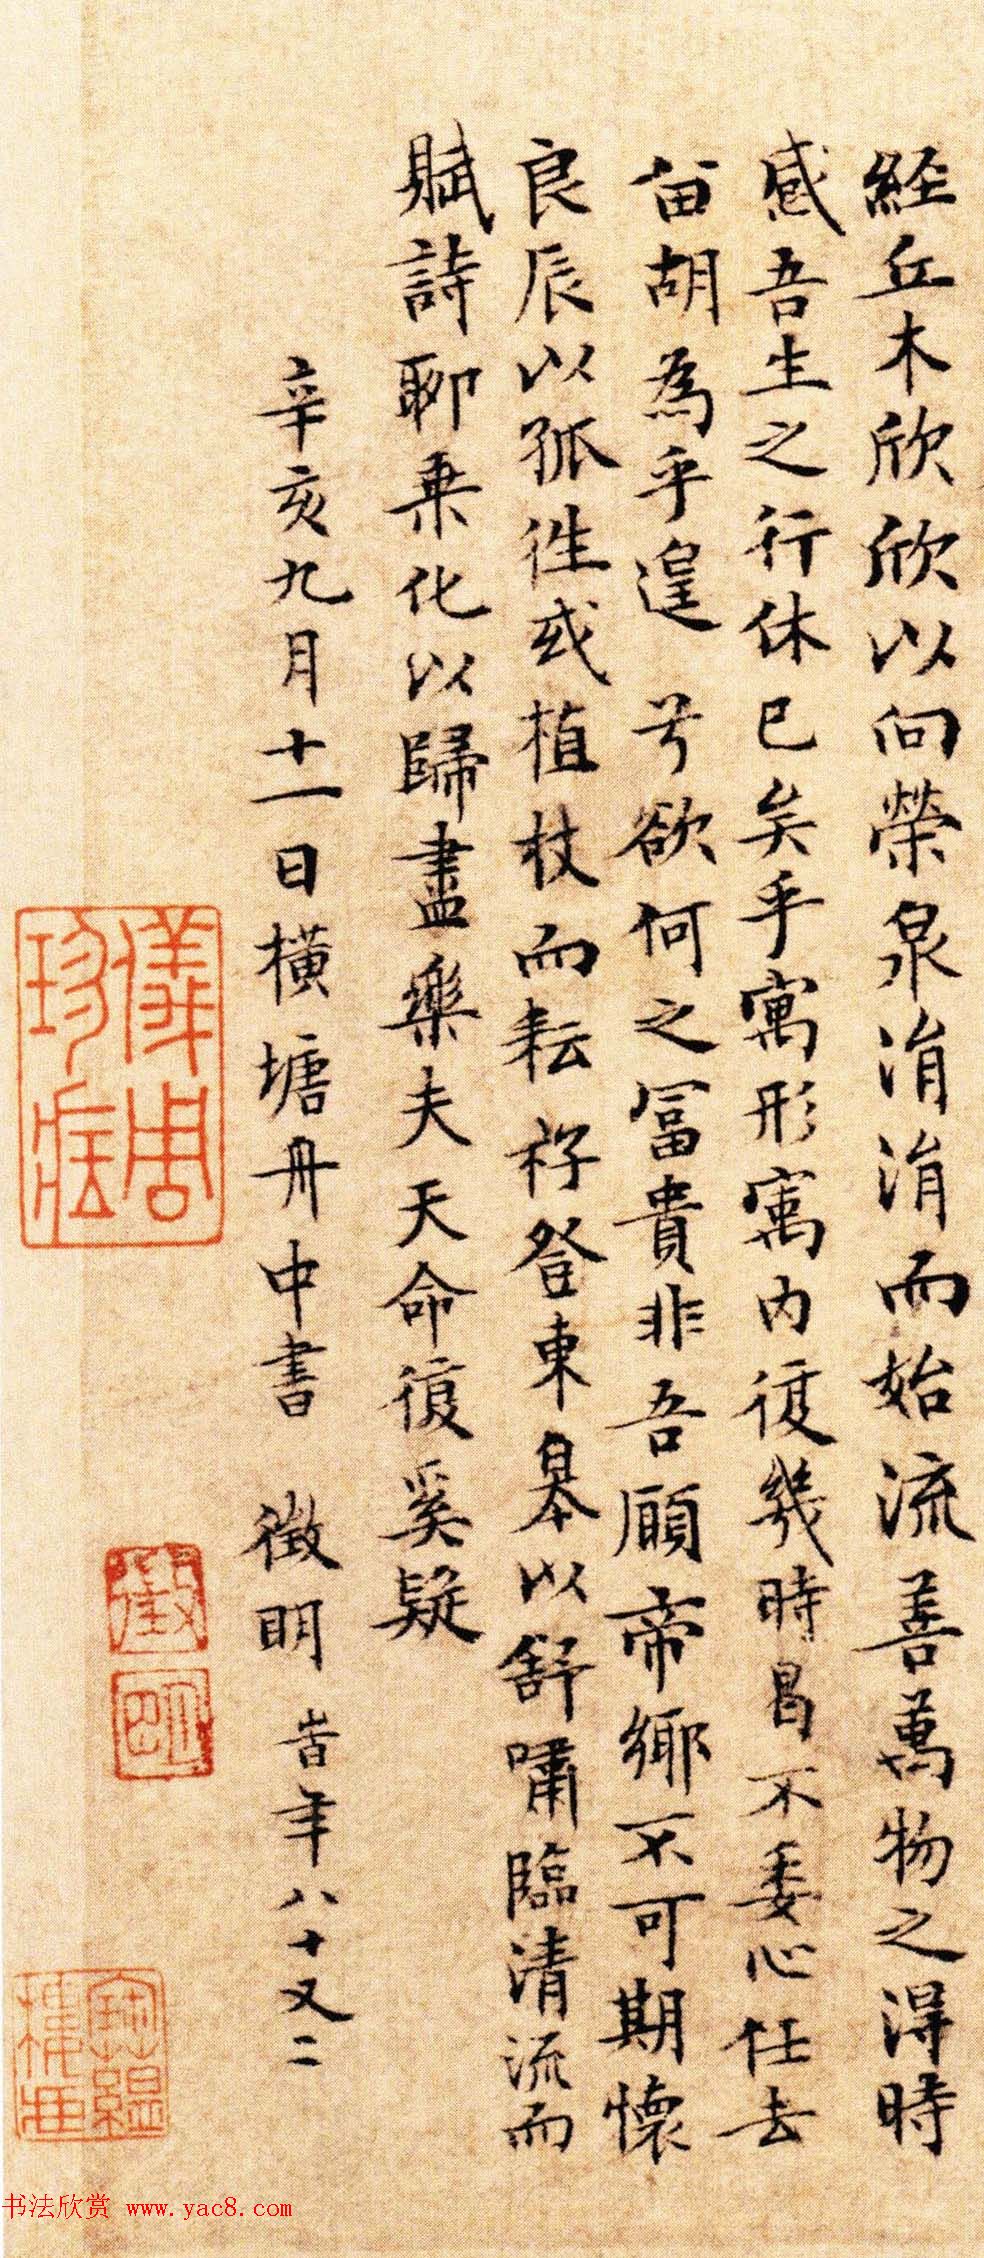 經丘木欣欣以向榮泉涓涓而始流善萬物之得時
感吾生之行休已矣乎寓形寓内復幾時曷不委心任去
留胡為乎遑兮欲何之冨貴非吾願帝鄉不可期懷
良辰以孤往或植杖而耘秄登東皋以舒嘯臨清流而
賦詩聊乗化以歸盡樂夫天命復奚疑
辛亥九月十一日横塘舟中書 徵明 旹年八十又二
儀周珍藏
徵
明
书法欣赏 www.yac8.com